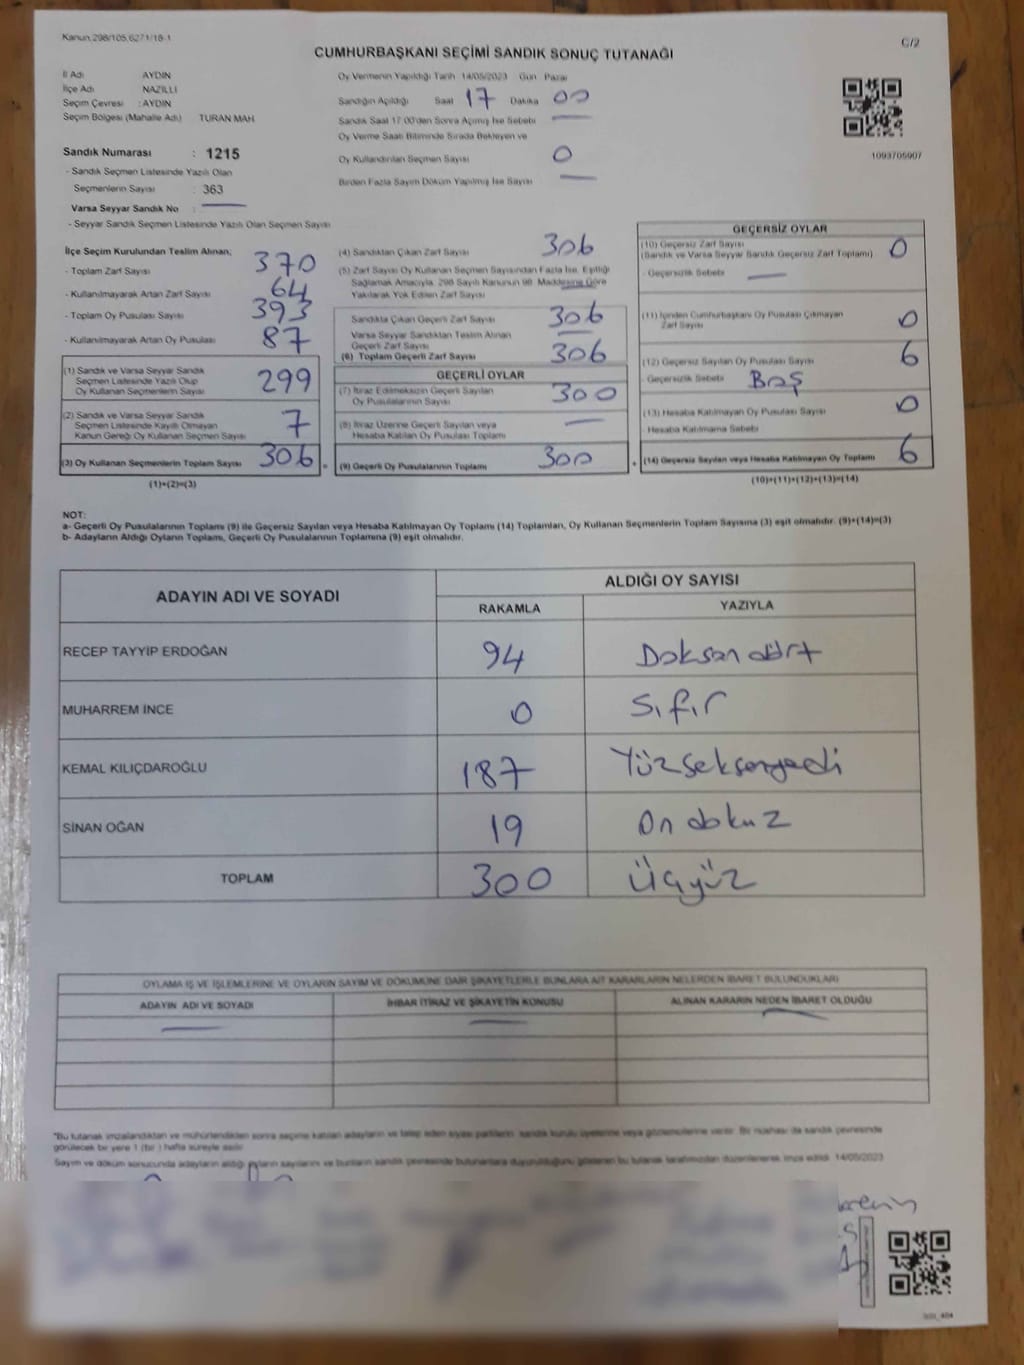 Kanun:298/105,6271/18-1
C/2
CUMHURBAŞKANI SEÇİMİ SANDIK SONUÇ TUTANAĞI
İl Adı AYDIN
İlçe Adı NAZİLLİ
Seçim Çevresi : AYDIN
Seçim Bölgesi (Mahalle Adı) TURAN MAH.
Sandık Numarası : 1215
- Sandık Seçmen Listesinde Yazılı Olan
Seçmenlerin Sayısı : 363
Varsa Seyyar Sandık No :
- Seyyar Sandık Seçmen Listesinde Yazılı Olan Seçmen Sayısı
Oy Vermenin Yapıldığı Tarih 14/05/2023 Gün Pazar
Sandığın Açıldığı Saat 17 Dakika 00
Sandık Saat 17:00'den Sonra Açılmış İse Sebebi
Oy Verme Saati Bitiminde Sırada Bekleyen ve
Oy Kullandırılan Seçmen Sayısı 0
Birden Fazla Sayım Döküm Yapılmış İse Sayısı
1093705907
İlçe Seçim Kurulundan Teslim Alınan;
- Toplam Zarf Sayısı 370
- Kullanılmayarak Artan Zarf Sayısı 64
- Toplam Oy Pusulası Sayısı 393
- Kullanılmayarak Artan Oy Pusulası 87
(1) Sandık ve Varsa Seyyar Sandık
Seçmen Listesinde Yazılı Olup
Oy Kullanan Seçmenlerin Sayısı 299
(2) Sandık ve Varsa Seyyar Sandık
Seçmen Listesinde Kayıtlı Olmayan
Kanun Gereği Oy Kullanan Seçmen Sayısı 7
(3) Oy Kullanan Seçmenlerin Toplam Sayısı 306 =
(1)+(2)=(3)
(4) Sandıktan Çıkan Zarf Sayısı 306
(5) Zarf Sayısı Oy Kullanan Seçmen Sayısından Fazla İse, Eşitliği
Sağlamak Amacıyla, 298 Sayılı Kanunun 98. Maddesine Göre
Yakılarak Yok Edilen Zarf Sayısı
Sandıkta Çıkan Geçerli Zarf Sayısı 306
Varsa Seyyar Sandıktan Teslim Alınan
Geçerli Zarf Sayısı
(6) Toplam Geçerli Zarf Sayısı 306
GEÇERLİ OYLAR
(7) İtiraz Edilmeksizin Geçerli Sayılan
Oy Pusulalarının Sayısı 300
(8) İtiraz Üzerine Geçerli Sayılan veya
Hesaba Katılan Oy Pusulası Toplamı
(9) Geçerli Oy Pusulalarının Toplamı 300 +
GEÇERSİZ OYLAR
(10) Geçersiz Zarf Sayısı 0
(Sandık ve Varsa Seyyar Sandık Geçersiz Zarf Toplamı)
- Geçersizlik Sebebi
(11) İçinden Cumhurbaşkanı Oy Pusulası Çıkmayan
Zarf Sayısı 0
(12) Geçersiz Sayılan Oy Pusulası Sayısı 6
- Geçersizlik Sebebi Boş
(13) Hesaba Katılmayan Oy Pusulası Sayısı 0
- Hesaba Katılmama Sebebi
(14) Geçersiz Sayılan veya Hesaba Katılmayan Oy Toplamı 6
(10)+(11)+(12)+(13)=(14)
NOT:
a- Geçerli Oy Pusulalarının Toplamı (9) ile Geçersiz Sayılan veya Hesaba Katılmayan Oy Toplamı (14) Toplamları, Oy Kullanan Seçmenlerin Toplam Sayısına (3) eşit olmalıdır. (9)+(14)=(3)
b- Adayların Aldığı Oyların Toplamı, Geçerli Oy Pusulalarının Toplamına (9) eşit olmalıdır.
ADAYIN ADI VE SOYADI ALDIĞI OY SAYISI
RAKAMLA YAZIYLA
RECEP TAYYİP ERDOĞAN 94 Doksandört
MUHARREM İNCE 0 Sıfır
KEMAL KILIÇDAROĞLU 187 Yüzseksenyedi
SİNAN OĞAN 19 Ondokuz
TOPLAM 300 Üçyüz
OYLAMA İŞ VE İŞLEMLERİNE VE OYLARIN SAYIM VE DÖKÜMÜNE DAİR ŞİKAYETLERLE BUNLARA AİT KARARLARIN NELERDEN İBARET BULUNDUKLARI
ADAYIN ADI VE SOYADI İHBAR İTİRAZ VE ŞİKAYETİN KONUSU ALINAN KARARIN NEDEN İBARET OLDUĞU
*Bu tutanak imzalandıktan ve mühürlendikten sonra seçime katılan adayların ve talep eden siyasi partilerin sandık kurulu üyelerine veya gözlemcilerine verilir. Bir nüshası da sandık çevresinde
görülecek bir yere 1 (bir) hafta süreyle asılır.
Sayım ve döküm sonucunda adayların aldığı oyların sayılarını ve bunların sandık çevresinde bulunanlara duyurulduğunu gösteren bu tutanak tarafımızdan düzenlenerek imza edildi. 14/05/2023